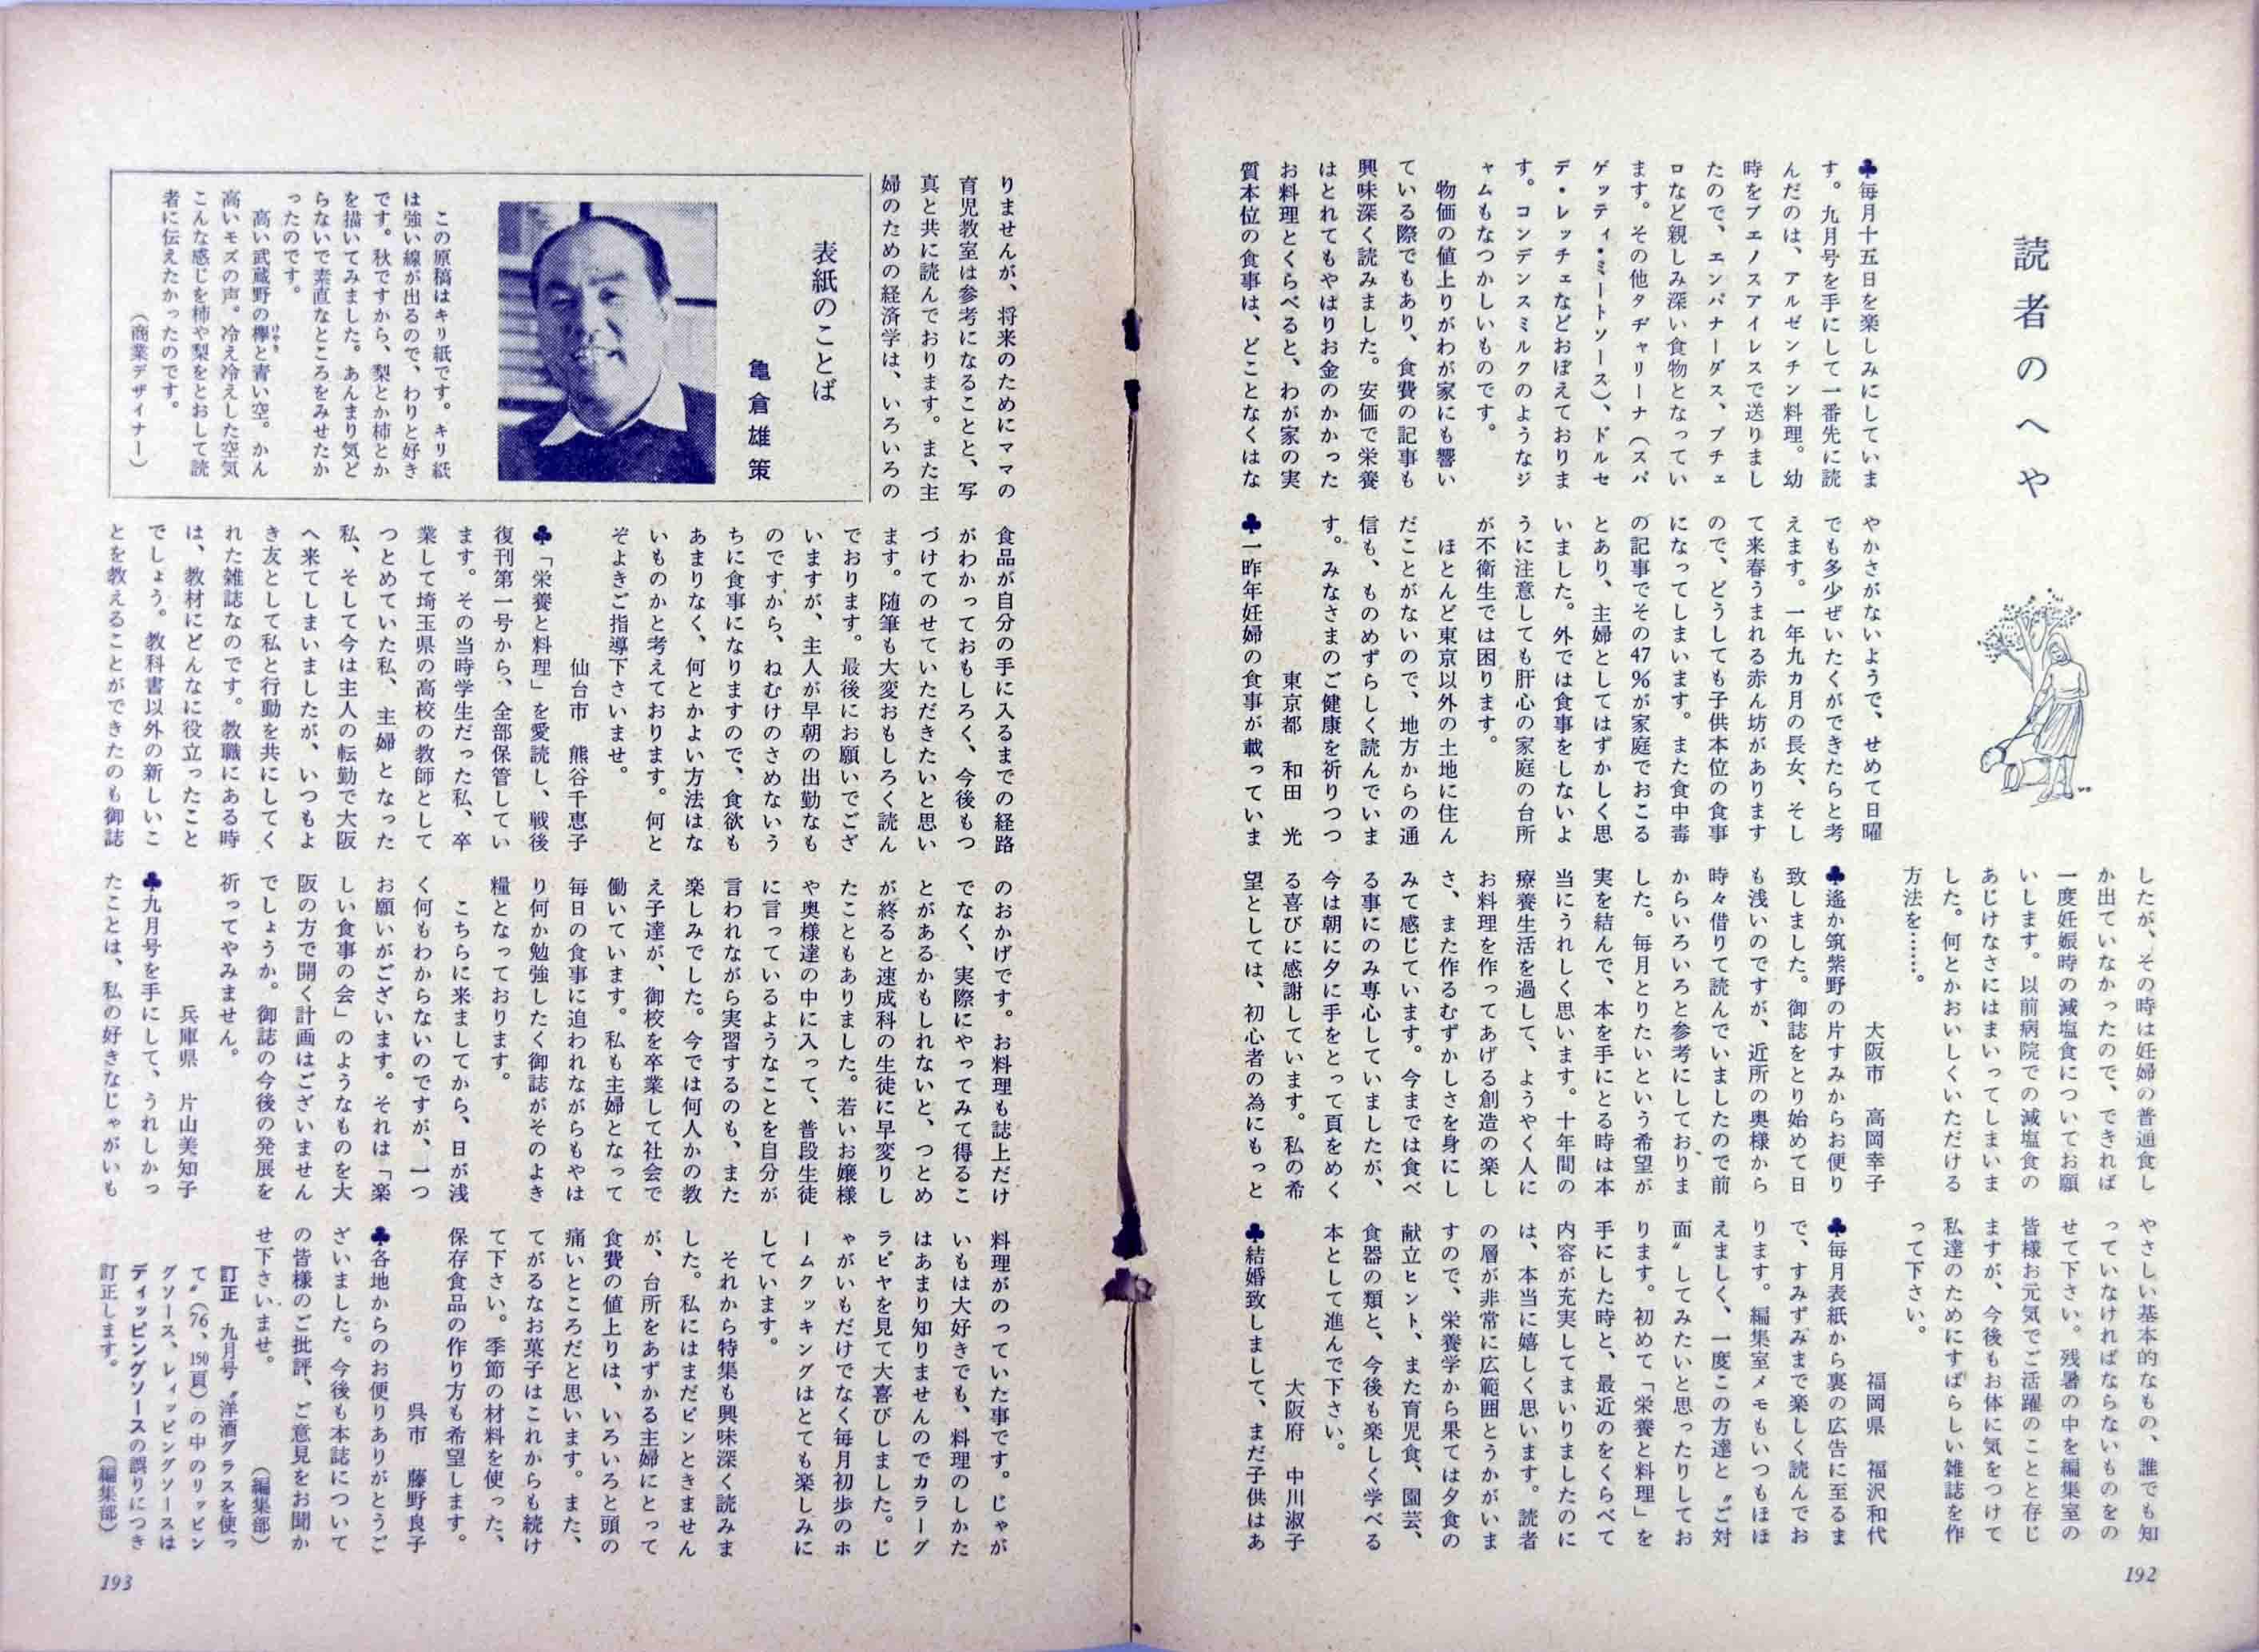 読者のへや
♣毎月十五日を楽しみにしていま
す。九月号を手にして一番先に読
んだのは、アルゼンチン料理。幼
時をブエノスアイレスで送りまし
たので、エンパナーダス、プチェ
ロなど親しみ深い食物となってい
ます。その他タヂャリーナ(スパ
ゲッティ・ミートソース)、ドルセ
デ・レッチェなどおぼえておりま
す。コンデンスミルクのようなジ
ャムもなつかしいものです。
物価の値上りがわが家にも響い
ている際でもあり、食費の記事も
興味深く読みました。安価で栄養
はとれてもやはりお金のかかった
お料理とくらべると、わが家の実
質本位の食事は、どことなくはな
やかさがないようで、せめて日曜
でも多少ぜいたくができたらと考
えます。一年九カ月の長女、そし
て来春うまれる赤ん坊があります
ので、どうしても子供本位の食事
になってしまいます。また食中毒
の記事でその47%が家庭でおこる
とあり、主婦としてはずかしく思
いました。外では食事をしないよ
うに注意しても肝心の家庭の台所
が不衛生では困ります。
ほとんど東京以外の土地に住ん
だことがないので、地方からの通
信も、ものめずらしく読んでいま
す。みなさまのご健康を祈りつつ
東京都 和田 光
♣一昨年妊婦の食事が載っていま
したが、その時は妊婦の普通食し
か出ていなかったので、できれば
一度妊娠時の減塩食についてお願
いします。以前病院での減塩食の
あじけなさにはまいってしまいま
した。何とかおいしくいただける
方法を……。
大阪市 高岡幸子
♣遙か筑紫野の片すみからお便り
致しました。御誌をとり始めて日
も浅いのですが、近所の奥様から
時々借りて読んでいましたので前
からいろいろと参考にしておりま
した。毎月とりたいという希望が
実を結んで、本を手にとる時は本
当にうれしく思います。十年間の
療養生活を過して、ようやく人に
お料理を作ってあげる創造の楽し
さ、また作るむずかしさを身にし
みて感じています。今までは食べ
る事にのみ専心していましたが、
今は朝に夕に手をとって頁をめく
る喜びに感謝しています。私の希
望としては、初心者の為にもっと
やさしい基本的なもの、誰でも知
っていなければならないものをの
せて下さい。残暑の中を編集室の
皆様お元気でご活躍のことと存じ
ますが、今後もお体に気をつけて
私達のためにすばらしい雑誌を作
って下さい。
福岡県 福沢和代
♣毎月表紙から裏の広告に至るま
で、すみずみまで楽しく読んでお
ります。編集室メモもいつもほほ
えましく、一度この方達と〝ご対
面〟してみたいと思ったりしてお
ります。初めて「栄養と料理」を
手にした時と、最近のをくらべて
内容が充実してまいりましたのに
は、本当に嬉しく思います。読者
の層が非常に広範囲とうかがいま
すので、栄養学から果ては夕食の
献立ヒント、また育児食、園芸、
食器の類と、今後も楽しく学べる
本として進んで下さい。
大阪府 中川淑子
♣結婚致しまして、まだ子供はあ
192
りませんが、将来のためにママの
育児教室は参考になることと、写
真と共に読んでおります。また主
婦のための経済学は、いろいろの
食品が自分の手に入るまでの経路
がわかっておもしろく、今後もつ
づけてのせていただきたいと思い
ます。随筆も大変おもしろく読ん
でおります。最後にお願いでござ
いますが、主人が早朝の出勤なも
のですから、ねむけのさめないう
ちに食事になりますので、食欲も
あまりなく、何とかよい方法はな
いものかと考えております。何と
ぞよきご指導下さいませ。
仙台市 熊谷千恵子
♣「栄養と料理」を愛読し、戦後
復刊第一号から、全部保管してい
ます。その当時学生だった私、卒
業して埼玉県の高校の教師として
つとめていた私、主婦となった
私、そして今は主人の転勤で大阪
へ来てしまいましたが、いつもよ
き友として私と行動を共にしてく
れた雑誌なのです。教職にある時
は、教材にどんなに役立ったこと
でしょう。教科書以外の新しいこ
とを教えることができたのも御誌
のおかげです。お料理も誌上だけ
でなく、実際にやってみて得るこ
とがあるかもしれないと、つとめ
が終ると速成科の生徒に早変りし
たこともありました。若いお嬢様
や奥様達の中に入って、普段生徒
に言っているようなことを自分が
言われながら実習するのも、また
楽しみでした。今では何人かの教
え子達が、御校を卒業して社会で
働いています。私も主婦となって
毎日の食事に追われながらもやは
り何か勉強したく御誌がそのよき
糧となっております。
こちらに来ましてから、日が浅
く何もわからないのですが、一つ
お願いがございます。それは「楽
しい食事の会」のようなものを大
阪の方で開く計画はございません
でしょうか。御誌の今後の発展を
祈ってやみません。
兵庫県 片山美知子
♣九月号を手にして、うれしかっ
たことは、私の好きなじゃがいも
料理がのっていた事です。じゃが
いもは大好きでも、料理のしかた
はあまり知りませんのでカラーグ
ラビヤを見て大喜びしました。じ
ゃがいもだけでなく毎月初歩のホ
ームクッキングはとても楽しみに
しています。
それから特集も興味深く読みま
した。私にはまだピンときません
が、台所をあずかる主婦にとって
食費の値上りは、いろいろと頭の
痛いところだと思います。また、
てがるなお菓子はこれからも続け
て下さい。季節の材料を使った、
保存食品の作り方も希望します。
呉市 藤野良子
♣各地からのお便りありがとうご
ざいました。今後も本誌について
の皆様のご批評、ご意見をお聞か
せ下さいませ。
(編集部)
訂正 九月号〝洋酒グラスを使っ
て〟(76、150頁)の中のリッピン
グソース、レィッピングソースは
ディッピングソースの誤りにつき
訂正します。
(編集部)
表紙のことば
亀倉雄策
この原稿はキリ紙です。キリ紙
は強い線が出るので、わりと好き
です。秋ですから、梨とか柿とか
を描いてみました。あんまり気ど
らないで素直なところをみせたか
ったのです。
高い武蔵野の欅と青い空。かん
けやき
高いモズの声。冷え冷えした空気
こんな感じを柿や梨をとおして読
者に伝えたかったのです。
(商業デザイナー)
193